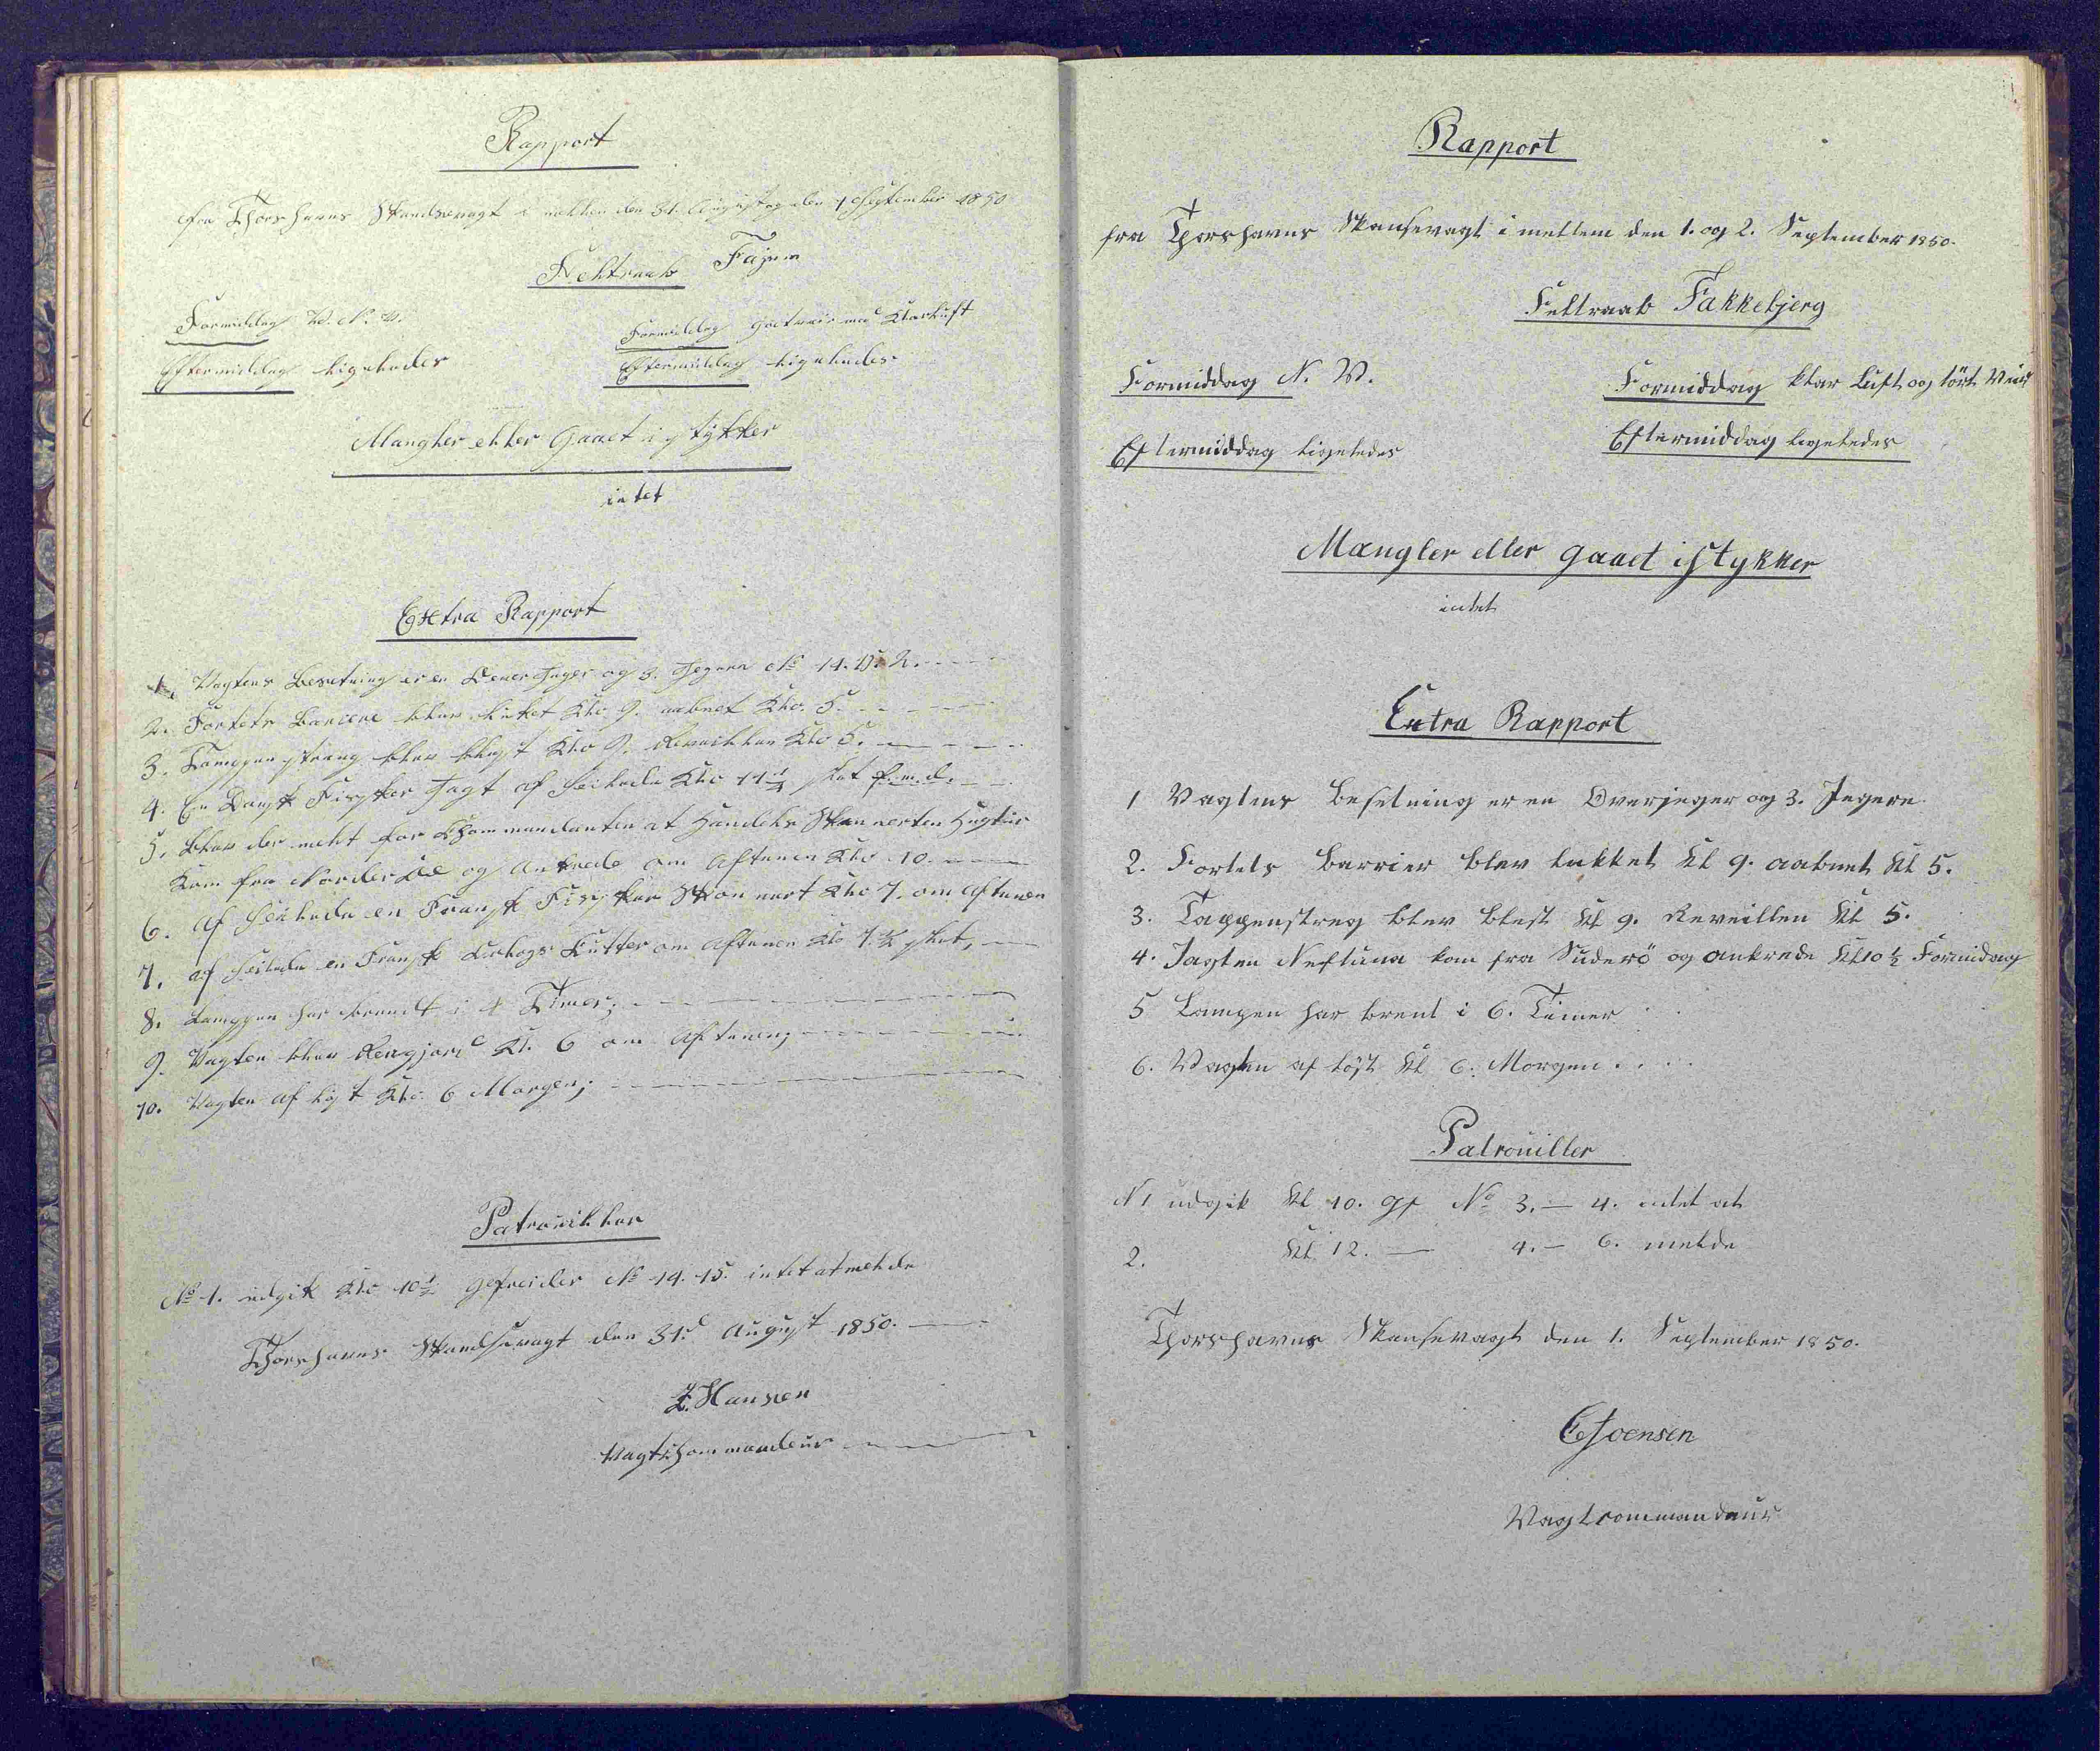 Rapport
fra Thorshavns Skandsevagt i mellem den 31. August og den 1 September 1850
Feltraab Fajum
Formiddag W. N. W.
Formiddag Godt veir med Klar Luft
Eftermiddag ligeledes
Eftermiddag ligeledes
Mangler eller Gaaet i stykker
intet
Extra Rapport
1. Vagtens Besætning er en Oever Jæger og 3. Jegere No 14. 15. 2.
2. Fortets Bariere blev lukket Klo. 9. aabnet Klo. 5.
3. Tamppenstræng blev blæst Klo 9. Reveillen Klo 5.
4. En Dansk Fisker Jagt af Seilede Klo 11 1/4 slet f. m. d.
5. blev der meldt for Khommandanten at Handels Skonnerten
kom fra Norder Øe og Ankrede om Aftenen Klo. 10.
6. Af Seilede en Fransk Fisker Skonnert Klo 7. om Aftenen
7. af Seilede en Fransk Kutter om Aftenen Klo 7 1/2 slet,
8. Lamppen har brændt i 4 Timer;
9. Vagten blev Rengjord Kl. 6 om Aftenen;
10. Vagten af løst Klo. 6 Morgen;
Patrouiller
No 1. udgik Klo 10 1/2 Gefreider No 14. 15. intet at melde
Thorshavns Skandsevagt den 31d August 1850.
Z. Hansen
Vagtkhommandeur
Rapport
fra Thorshavns Skansevagt i mellem den 1. og 2. September 1850.
Feltraab Fakkebjerg
Formiddag N. W.
Formiddag klar Luft og tört Veir
Eftermiddag ligeledes
Eftermiddag ligeledes
Mangler eller gaaet istykker
intet
Extra Rapport
1 Vagtens Besetning er en Overjeger og 3. Jegere
2. Fortets Barrier blev lukket Kl 9. aabnet Kl 5.
3. Tappenstreg blev blest Kl 9. Reveillen Kl 5.
4. Jagten Neftuna kom fra Suderö og ankrede Kl 10 1/2 Formidag
5 Lampen har brent i 6. Timer
6. Vagten af löst Kl 6. Morgen
Patrouiller
N 1 udgik Kl 10. Gf No 3. — 4. intet at
2. Kl. 12. — 4. — 6. melde
Thorshavns Skansevagt den 1. September 1850.
Joensen
Vagtcommandeur